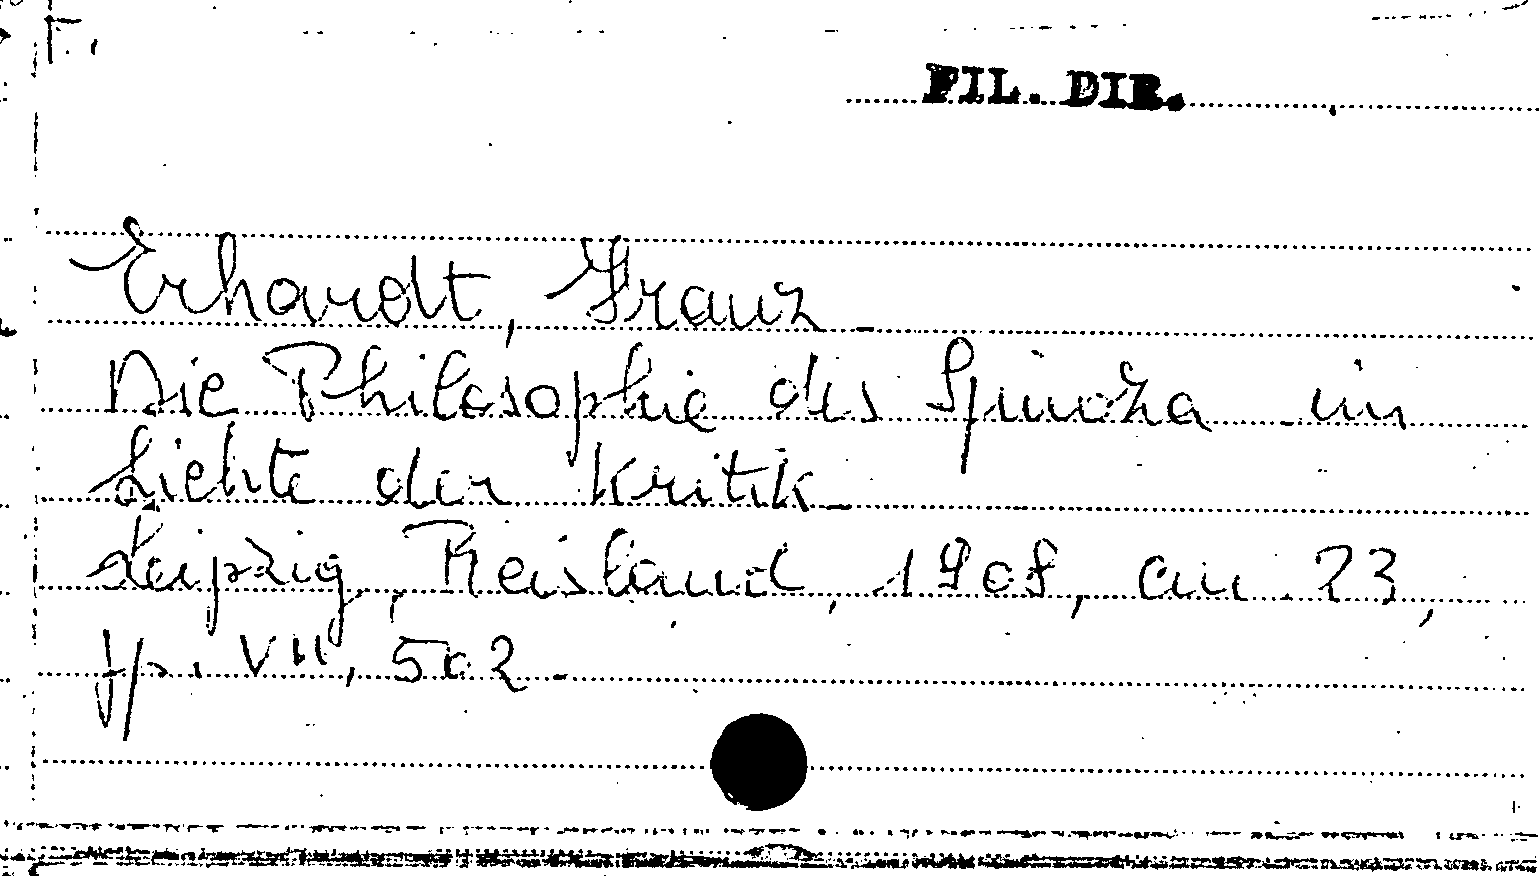 F.
FIL. DIR.
Erhardt, Franz
Die Philosophie des Spinoza im
Lichte der Kritik
Leipzig, Reisland, 1908, cm 23,
pp. VII, 502